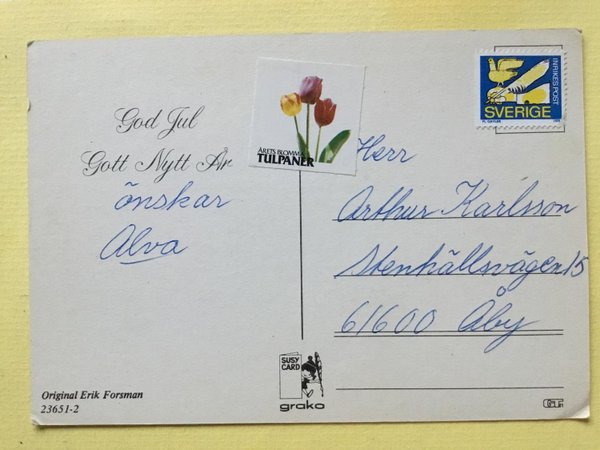 God Jul
Gott Nytt År
önskar
Alva
ÅRETS BLOMMA
TULPANER
INRIKES POST
SVERIGE
Herr
Arthur Karlsson
Stenhällsvägen 15
61600 Åby
SUSY
CARD
grako
Original Erik Forsman
23651-2